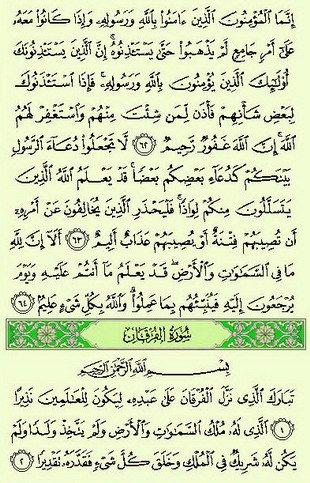 إِنَّمَا ٱلْمُؤْمِنُونَ ٱلَّذِينَ ءَامَنُوا۟ بِٱللَّهِ وَرَسُولِهِۦ وَإِذَا كَانُوا۟ مَعَهُۥ
عَلَىٰٓ أَمْرٍ جَامِعٍ لَّمْ يَذْهَبُوا۟ حَتَّىٰ يَسْتَـْٔذِنُوهُ ۚ إِنَّ ٱلَّذِينَ يَسْتَـْٔذِنُونَكَ
أُو۟لَٰٓئِكَ ٱلَّذِينَ يُؤْمِنُونَ بِٱللَّهِ وَرَسُولِهِۦ ۚ فَإِذَا ٱسْتَـْٔذَنُوكَ
لِبَعْضِ شَأْنِهِمْ فَأْذَن لِّمَن شِئْتَ مِنْهُمْ وَٱسْتَغْفِرْ لَهُمُ
ٱللَّهَ ۚ إِنَّ ٱللَّهَ غَفُورٌ رَّحِيمٌ ٦٢ لَّا تَجْعَلُوا۟ دُعَآءَ ٱلرَّسُولِ
بَيْنَكُمْ كَدُعَآءِ بَعْضِكُم بَعْضًا ۚ قَدْ يَعْلَمُ ٱللَّهُ ٱلَّذِينَ
يَتَسَلَّلُونَ مِنكُمْ لِوَاذًا ۚ فَلْيَحْذَرِ ٱلَّذِينَ يُخَالِفُونَ عَنْ أَمْرِهِۦٓ
أَن تُصِيبَهُمْ فِتْنَةٌ أَوْ يُصِيبَهُمْ عَذَابٌ أَلِيمٌ ٦٣ أَلَآ إِنَّ لِلَّهِ
مَا فِى ٱلسَّمَٰوَٰتِ وَٱلْأَرْضِ ۖ قَدْ يَعْلَمُ مَآ أَنتُمْ عَلَيْهِ وَيَوْمَ
يُرْجَعُونَ إِلَيْهِ فَيُنَبِّئُهُم بِمَا عَمِلُوا۟ ۗ وَٱللَّهُ بِكُلِّ شَىْءٍ عَلِيمٌۢ ٦٤
سُورَةُ الْفُرْقَانِ
بِسْمِ ٱللَّهِ ٱلرَّحْمَٰنِ ٱلرَّحِيمِ
تَبَارَكَ ٱلَّذِى نَزَّلَ ٱلْفُرْقَانَ عَلَىٰ عَبْدِهِۦ لِيَكُونَ لِلْعَٰلَمِينَ نَذِيرًا
١ ٱلَّذِى لَهُۥ مُلْكُ ٱلسَّمَٰوَٰتِ وَٱلْأَرْضِ وَلَمْ يَتَّخِذْ وَلَدًا وَلَمْ
يَكُن لَّهُۥ شَرِيكٌ فِى ٱلْمُلْكِ وَخَلَقَ كُلَّ شَىْءٍ فَقَدَّرَهُۥ تَقْدِيرًا ٢